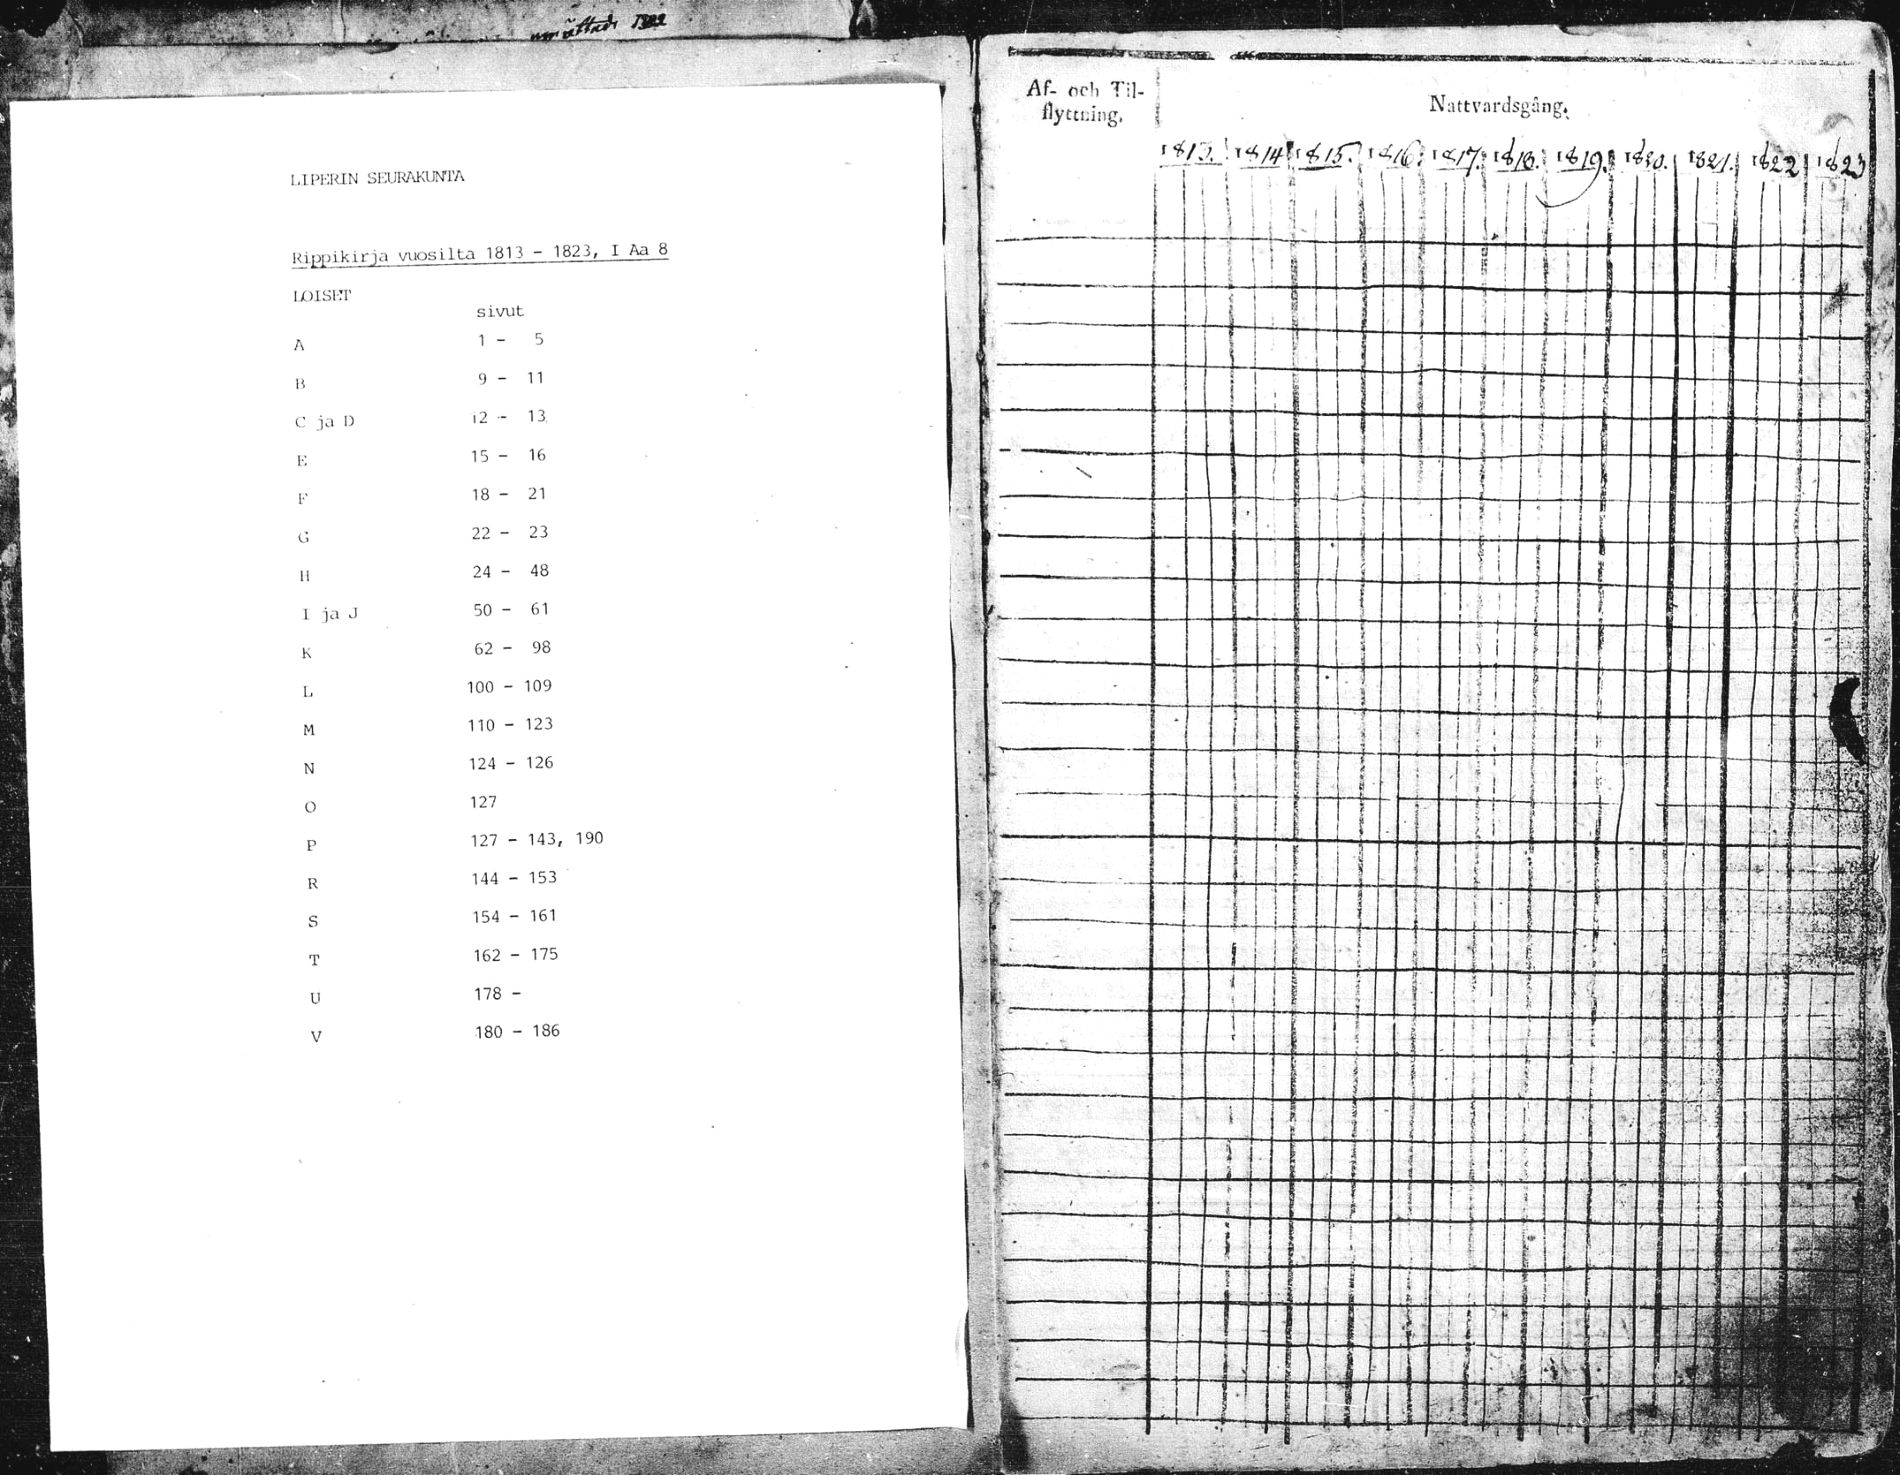 1822
LIPERIN SEURAKUNTA
Rippikirja vuosilta 1813 - 1823, I Aa 8
LOISET
sivut
A 1 - 5
B 9 - 11
C ja D 12 - 13
E 15 - 16
F 18 - 21
G 22 - 23
H 24 - 48
I ja J 50 - 61
K 62 - 98
L 100 - 109
M 110 - 123
N 124 - 126
O 127
P 127 - 143, 190
R 144 - 153
S 154 - 161
T 162 - 175
U 178 -
V 180 - 186
Af- och Til-
flyttning.
Nattvardsgång.
1813. 1814 1815. 1816. 1817. 1818. 1819. 1820. 1821. 1822 1823